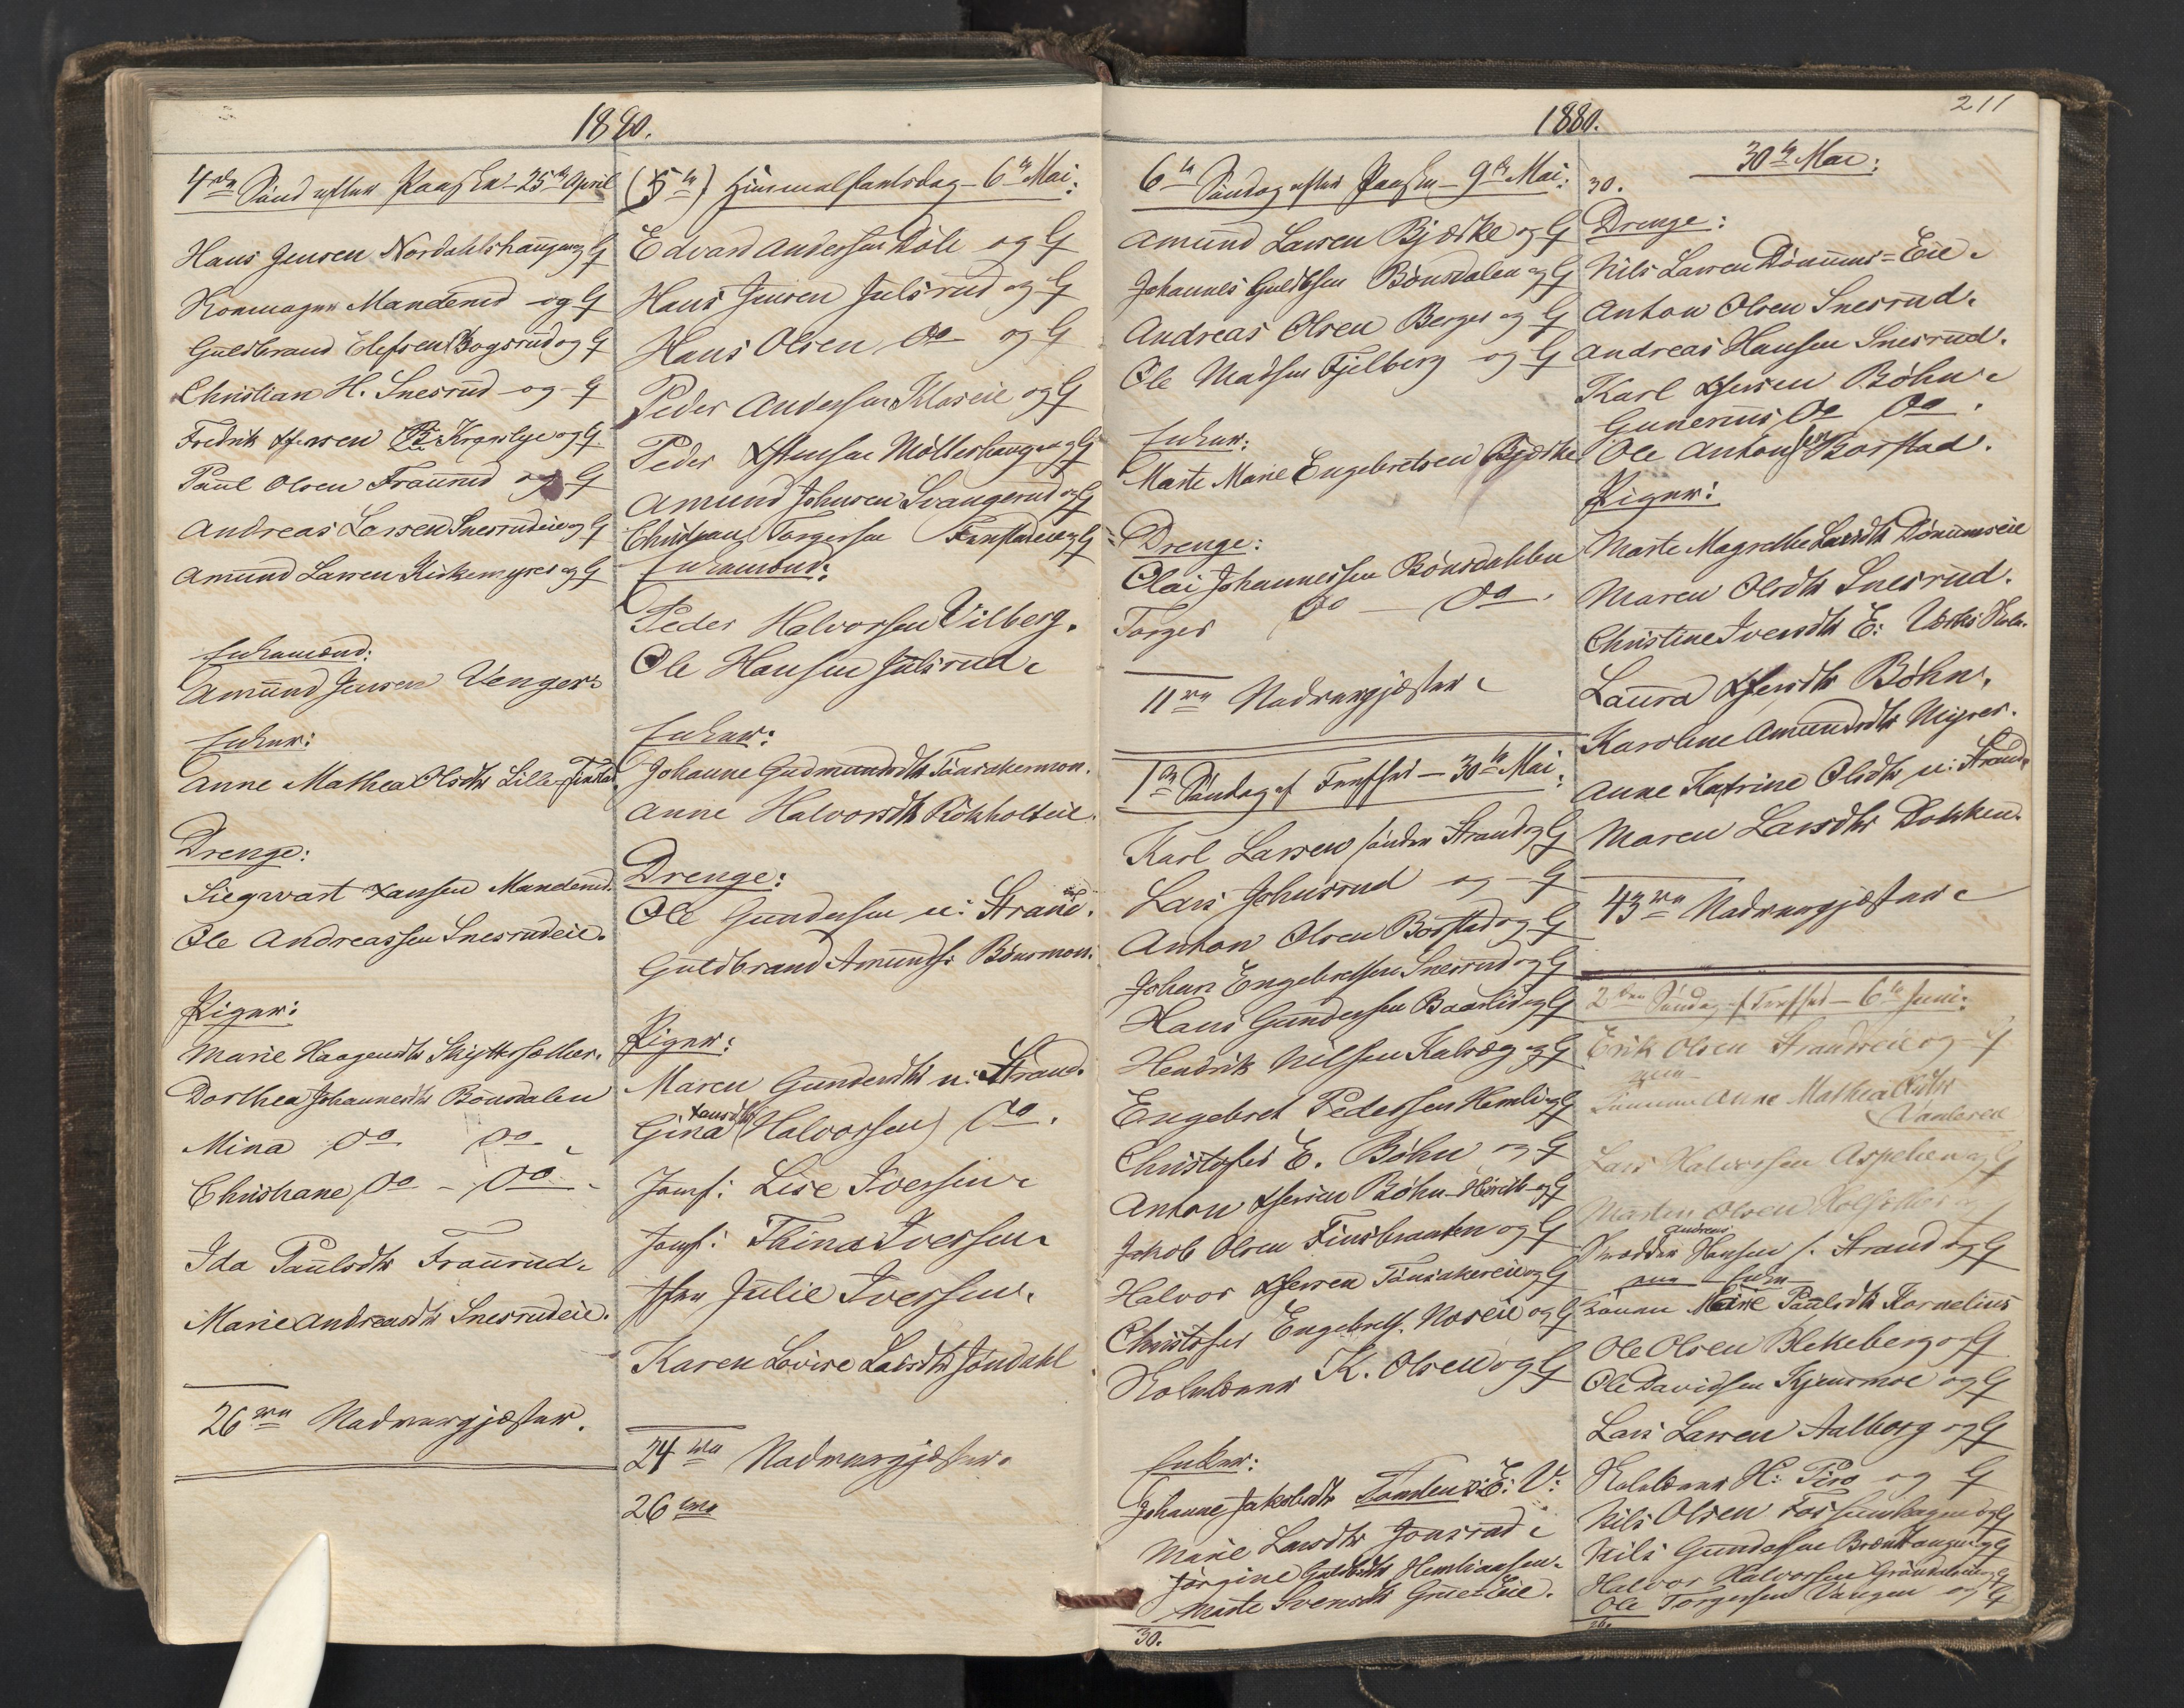 1880.
4de Sønd efter Paaske 25de April
Hans Jensen Nordahlshaugen og G
Kommagner Mandenid og G
Guldbrand Elefsen Bogsrud og G
Christian H. Snesrud og G
Fredrik og G
Paul Olsen Fraunud og G
Andreas Larsen Snesrudeie og G
Amund Larsen Kirkemyrer og G
Enkemænd:
Amund Jensen Venger
Enker:
Anne Mathea Olsdtr Lille-Finstad
Drenge:
Siegwart Hansen Mandenid.
Ole Andreassen Snesrudeie.
Piger:
Marie Haagensdtr Skyttersæther.
Dorthea Johannesdtr Bønsdalen
Mina do do
Christiane do - do
Ida Paulsdtr Fraunud.
Marie Andreasdtr Snesrudeie.
26 Nadvergjæster.
(5te) Himmelfartsdag - 6te Mai:
Edvard Andersen Døli og G
Hans Jensen Julsrud og G
Hans Olsen do og G
Peder Andersen Kloseie og G
Peder Møllerhaugen og G
Amund Johnsen Svangerud og G
Christian Torgersen Finstadeie og G
Enkemænd:
Peder Halvorsen Vilberg.
Ole Hansen Julsrud.
Enker:
Johanne Gudmundsdtr Tønsakermon.
Anne Halvorsdtr Rökholteie.
Drenge:
Ole Gundersen n: Strand.
Guldbrand Amunds. Bönsmoen.
Piger:
Maren Gundersdtr n: Strand.
Hansdtr
Gina (Halvorsen) do.
Jomf: Lise Iversen.
Jomf: Thina Iversen
Julie Iversen.
Karen Lovise Larsdtr Jöndahl
24 Nadvergjæster.
26
1880.
211
6te Søndag efter Paaske - 9de Mai:
Amund Larsen Bjørke og G
Johannes Guldbsen Bönsdalen og G
Andreas Olsen Berger og G
Ole Madsen Fjelberg og G
Enker:
Marte Marie Engebretsen Bjørke
Drenge:
Olai Johannessen Bönsdahlen
Torger do - do.
11 Nadvergjæster.
1ste Søndag ef Trefhed - 30te Mai:
Karl Larsen søndre Strand og G
Lars Johnsrud og G
Anton Olsen Borstad og G
Johan Engebretsen Snesrud og G
Hans Gundersen Baarlid og G
Hendrik Nilsen Kalvæg og G
Engebret Pedersen Hemli og G
Christofer E. Böhn og G
Anton Böhn og G
Jakob Olsen Finsbraaten og G
Halvor Tönsakereie og G
Christofer Engebrets. Noreie og G
K. Olsen og G
Enker:
Johanne Jakobsdtr E: V:
Marie Larsdtr Jonsrud.
Jørgine Guldbdtr Hemliaasen.
Marte Svensdtr Grue-Eie.
30.
30te Mai:
30.
Drenge:
Nils Larsen Dönnums-Eie.
Anton Olsen Snesrud.
Andreas Hansen Snesrud.
Karl Böhn.
Gunerius do do.
Ole Antonsen Borstad.
Piger:
Marte Magrethe Larsdtr Dönnumseie
Maren Olsdtr Snesrud.
Christine Iversdtr E: Værks
Laura Böhn.
Karoline Amundsdtr Myrer.
Anne Katrine Olsdtr n: Strand.
Maren Larsdtr Dokken.
43 Nadvergjæster.
2den Søndag f Trefhed - 6te Juni:
Erik Olsen Strandseie og G
Anne Mathea Olsdtr
Lars Halvorsen Aspelien og G
Martin Olsen og
Andreas
Hansen s. Strand og G
Marie Paulsdtr Kornelius
Ole Olsen Blekeberg og G
Ole Davidsen Kjensmoe og G
Lars Larsen Aalborg og G
H: Piro og G
Nils Olsen Fossumhagen og G
Nils Gundersen og G
Halvor Halvorsen og G
Ole Torgersen Vangen og G
26.